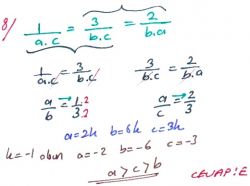 8/ 1/(a.c) = 3/(b.c) = 2/(b.a)
1/(a.c) = 3/(b.c) 3/(b.c) = 2/(b.a)
a/b = 1.2/3.2 a/c = 2/3
a=2k b=6k c=3k
k=-1 olsun a=-2 b=-6 c=-3
a>c>b
CEVAP:E